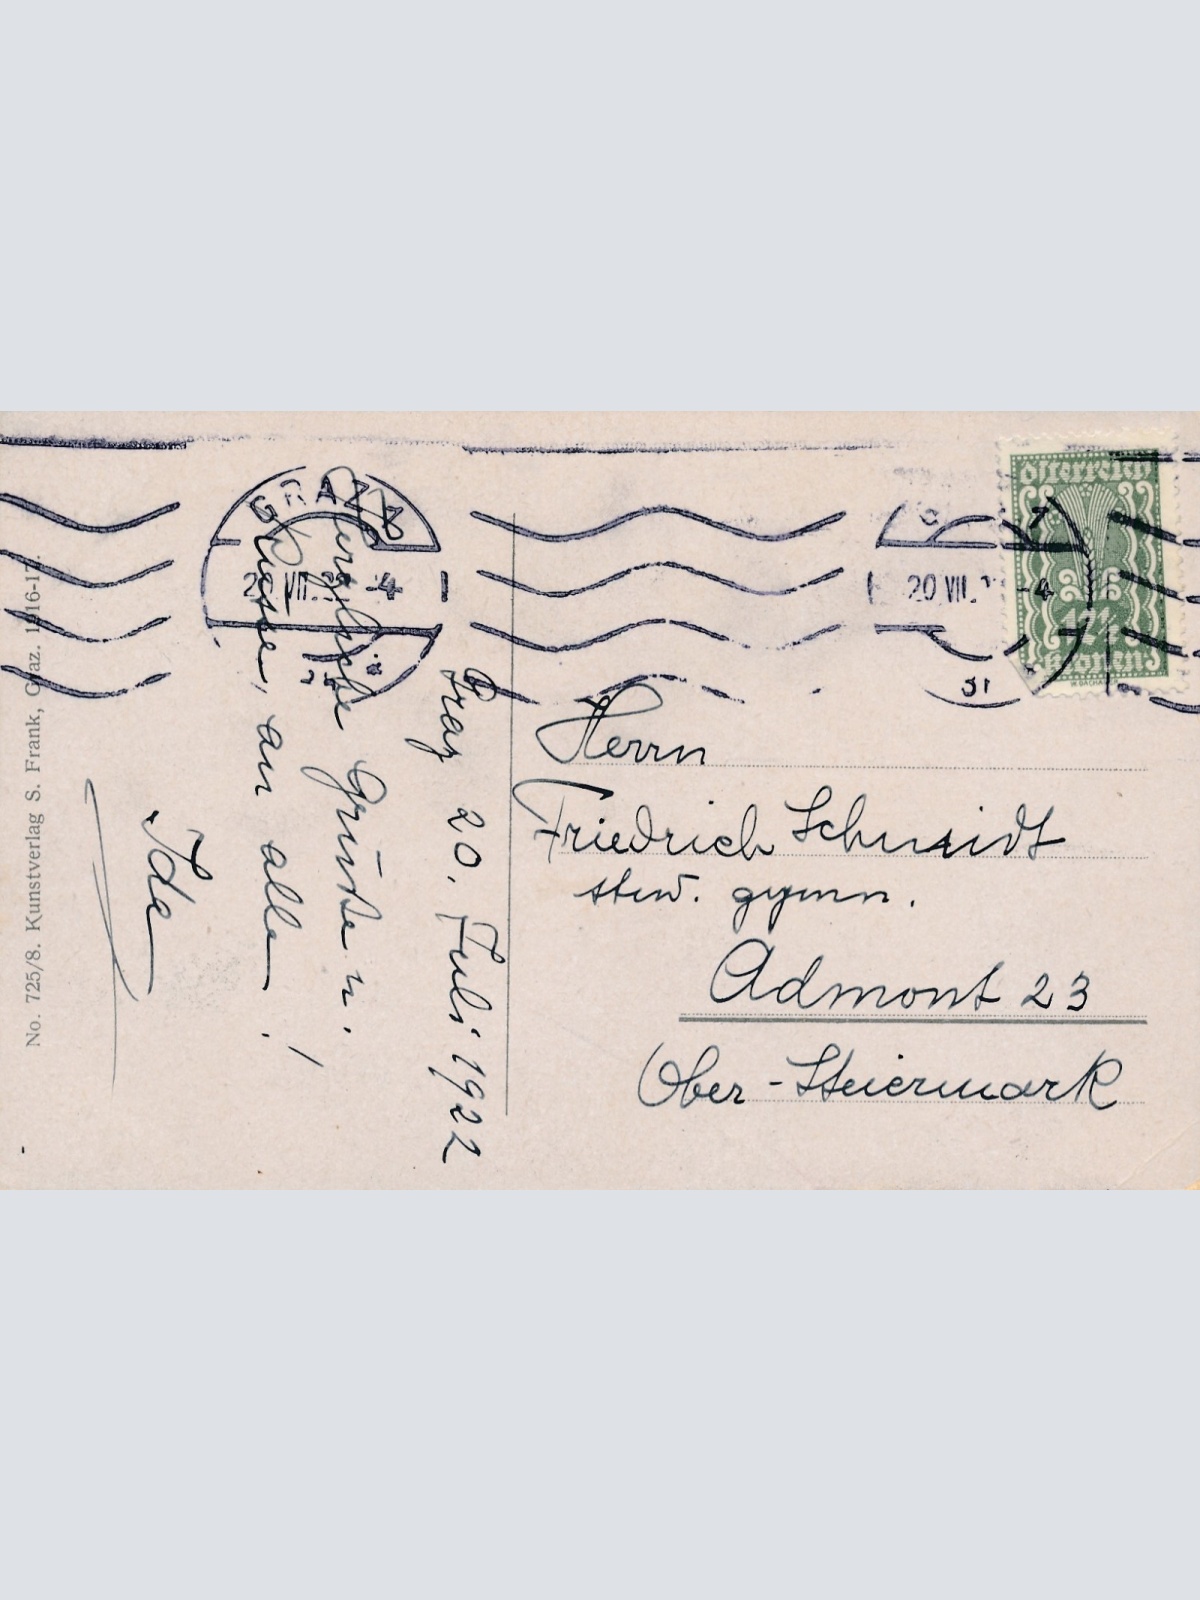 Graz 20. Juli 1922
Herzliche Grüße u.
Küsse, an alle!
Ida
Herrn
Friedrich Schmidt
stud. gymn.
Admont 23
Ober-Steiermark
No. 725/8. Kunstverlag S. Frank, Graz. 1916-17.
GRAZ
20. VII. -4
20. VII. -4
Österreich
Kronen